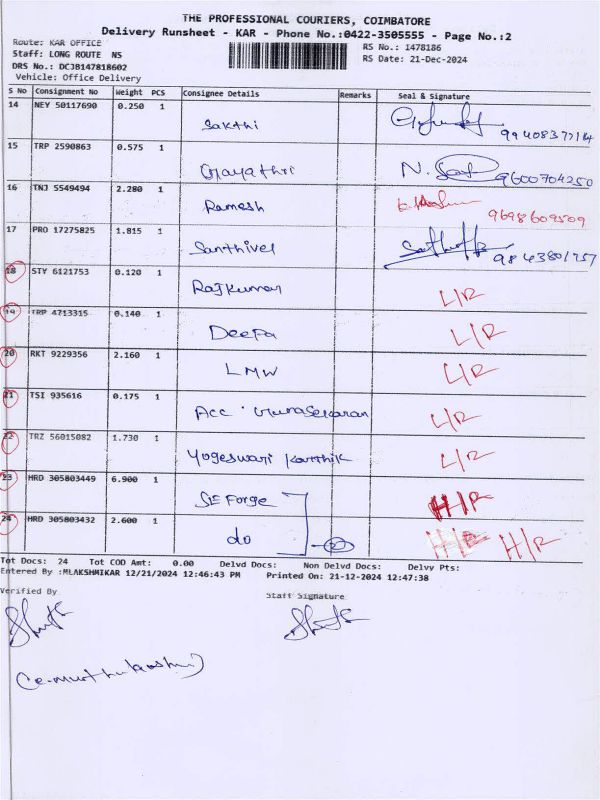 THE PROFESSIONAL COURIERS, COIMBATORE
Delivery Runsheet - KAR - Phone No.:0422-3505555 - Page No.:2
Route: KAR OFFICE RS No.: 1478186
Staff: LONG ROUTE NS RS Date: 21-Dec-2024
DRS No.: DCJB147818602
Vehicle: Office Delivery
S No Consignment No Weight PCS Consignee Details Remarks Seal & Signature
14 NEY 50117690 0.250 1 Sakthi
15 TRP 2590863 0.575 1 Gayathri N. 9600704250
16 TNJ 5549494 2.280 1 Ramesh 9698609509
17 PRO 17275825 1.815 1 Santhivel 9843801757
18 STY 6121753 0.120 1 Rajkumar L/R
19 TRP 4713315 0.140 1 Deepa L/R
20 RKT 9229356 2.160 1 LMW L/R
21 TSI 935616 0.175 1 Acc. Gunasekaran L/R
22 TRZ 56015082 1.730 1 Yogeswari Karthik L/R
23 HRD 305803449 6.900 1 SE Forge H/R
24 HRD 305803432 2.600 1 do 2 H/R H/R
Tot Docs: 24 Tot COD Amt: 0.00 Delvd Docs: Non Delvd Docs: Delvy Pts:
Entered By :MLAKSHMIKAR 12/21/2024 12:46:43 PM Printed On: 21-12-2024 12:47:38
Verified By Staff Signature